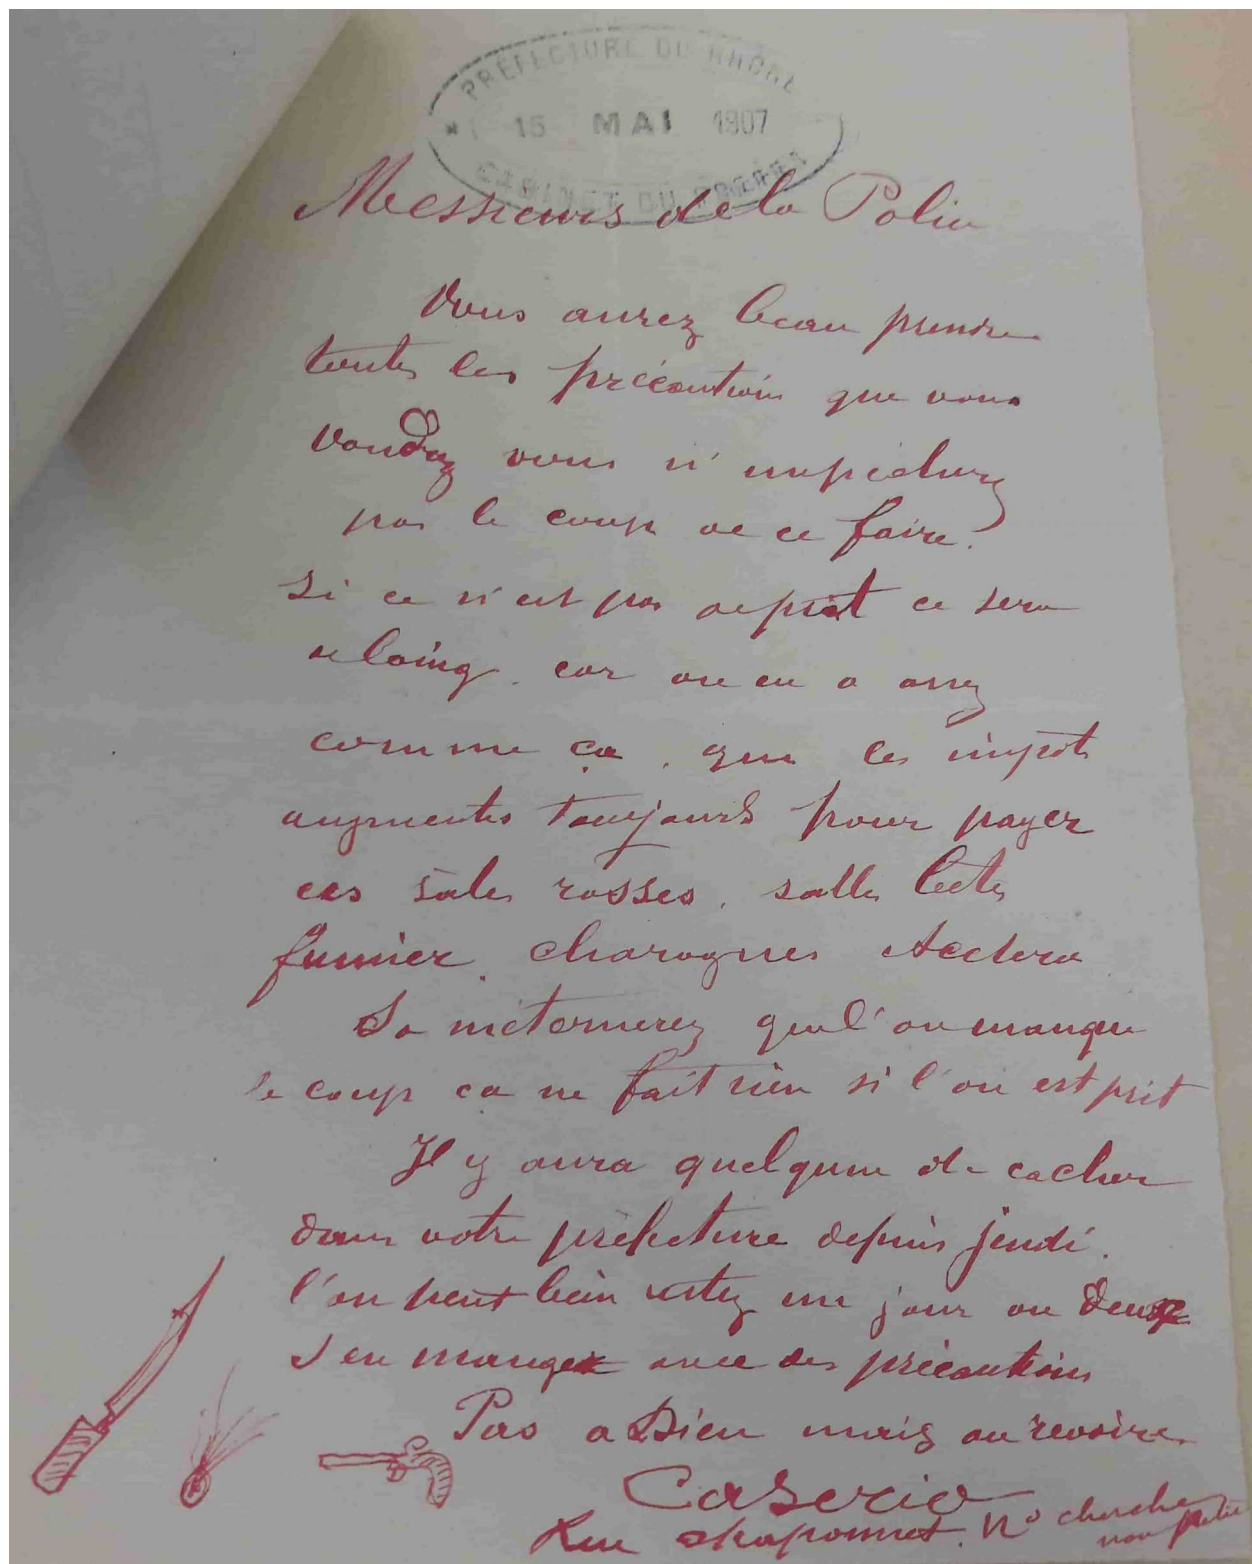 PRÉFECTURE DU RHÔNE
15 MAI 1907
CABINET DU PRÉFET
Messieurs de la Police
Vous aurez beau prendre
toutes les précaution que vous
voudrez vous n'empécherez
pas le coup de ce faire.
Si ce n'est pas de prèt ce sera
de loing. car on en a assez
comme ça, que les impôts
augmentes toujours pour payer
ces sales rosses, salles bêtes
fumier, charognes etcetera
Sa métonnerez que l'on manque
le coup ça ne fait rien si l'on est prit
Il y aura quelqu'un de cacher
dans votre préfecture depuis jeudi.
l'on peut bien restez un jour ou deux
s'en manger avec des précautions
Pas a Dieu mais au revoire
Caserio
Rue No cherche